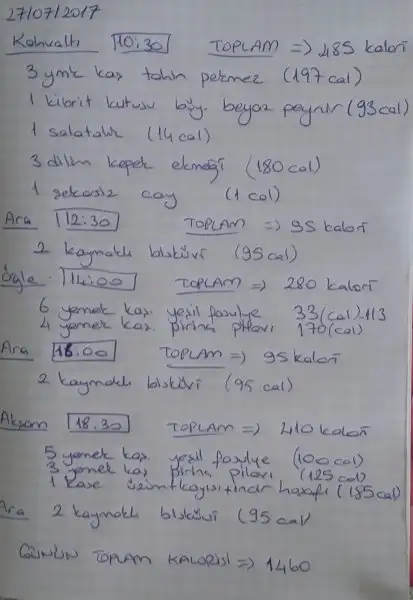 27/07/2017
Kahvaltı 10:30 TOPLAM => 485 kalori
3 ymk kaş tahin pekmez (197 cal)
1 kibrit kutusu büy. beyaz peynir (93 cal)
1 salatalık (14 cal)
3 dilim kepek ekmeği (180 cal)
1 şekersiz çay (1 cal)
Ara 12:30 TOPLAM => 95 kalori
2 kaymaklı bisküvi (95 cal)
Öğle 14:00 TOPLAM => 280 kalori
6 yemek kaş. yeşil fasulye 33(cal) 113
4 yemek kaş. pirinç pilavı 170(cal)
Ara 16.00 TOPLAM => 95 kalori
2 kaymaklı bisküvi (95 cal)
Akşam 18.30 TOPLAM => 410 kalori
5 yemek kaş. yeşil fasulye (100 cal)
3 yemek kaş pirinç pilavı (125 cal)
1 kase üzüm+kayısı+incir hoşafı (185 cal)
Ara 2 kaymaklı bisküvi (95 cal)
GÜNÜN TOPLAM KALORİSİ => 1460